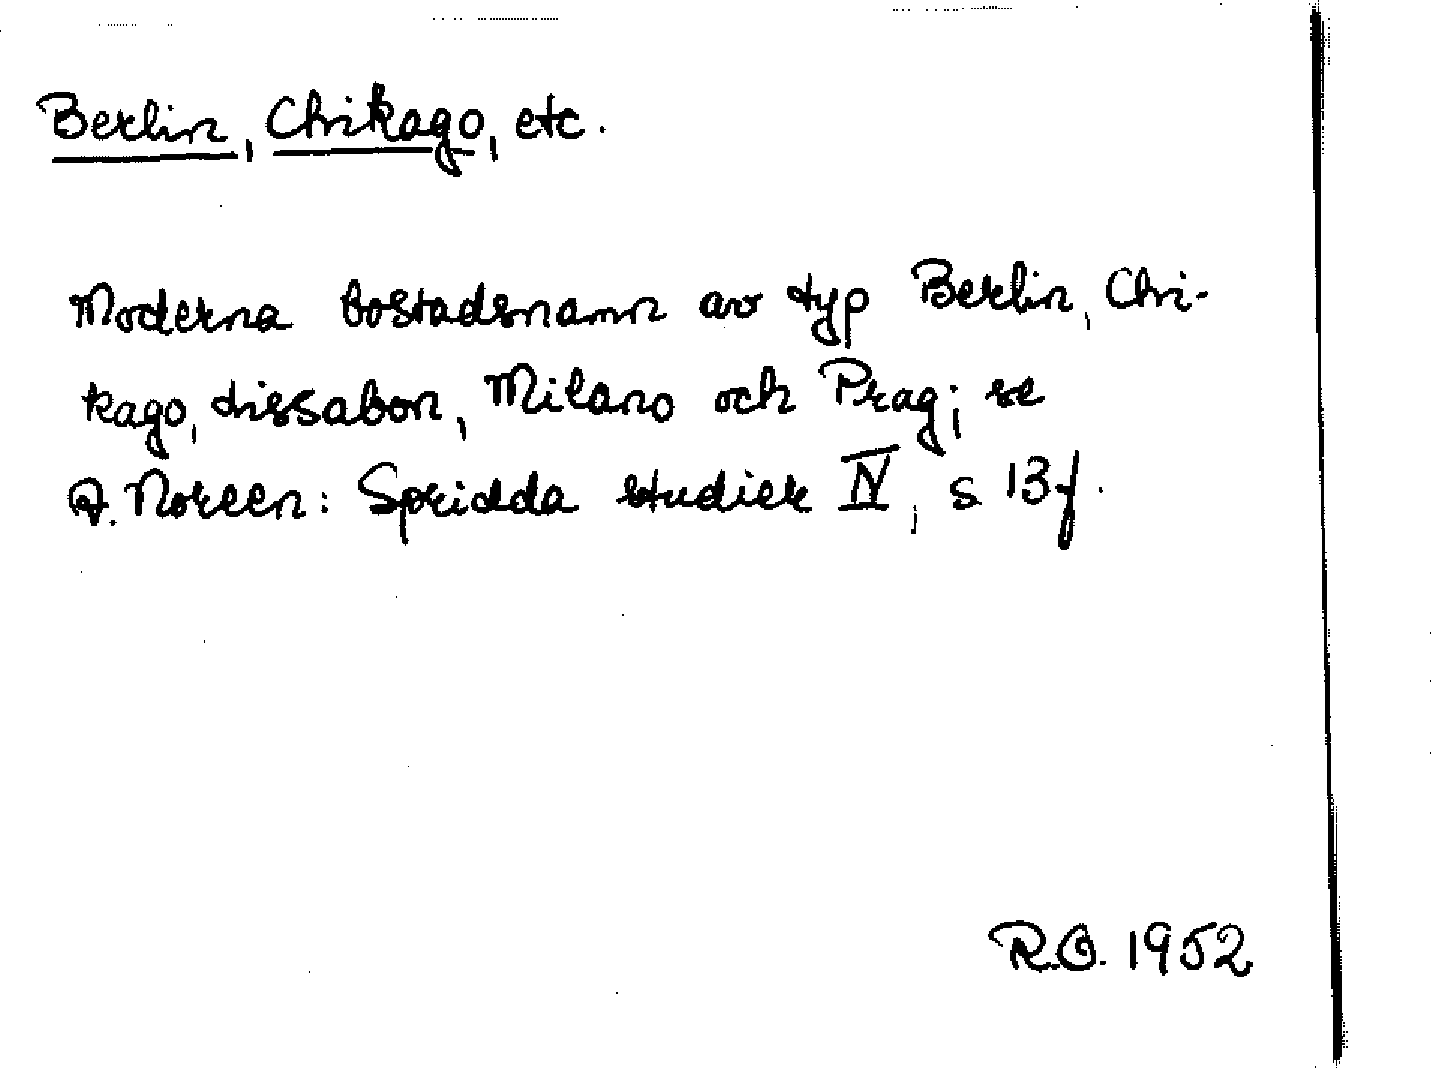 Berlin, Chikago, etc.
Moderna bostadsnamn av typ Berlin, Chi-
kago, Lissabon, Milano och Prag; se
A. Noreen: Spridda studier IV, s 13f.
R.O. 1952